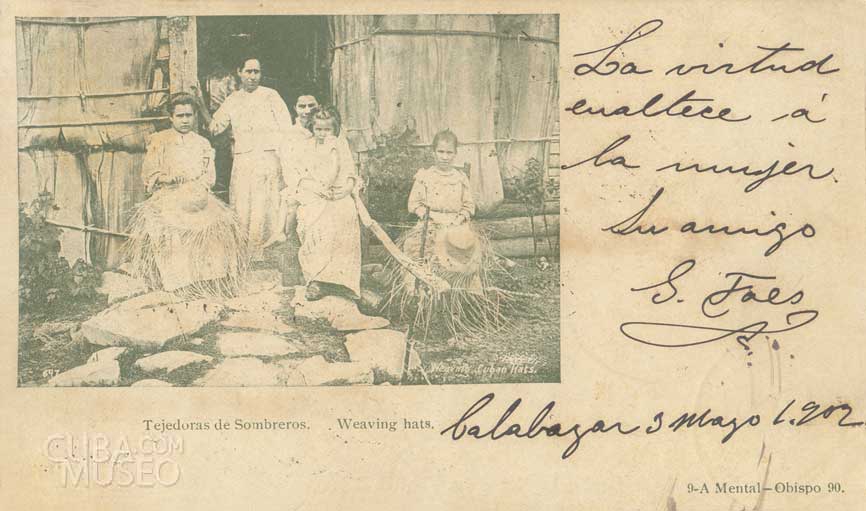 La virtud
enaltece á
la mujer.
Su amigo
G. Faes
647
Weaving Cuban Hats.
Tejedoras de Sombreros. Weaving hats.
Calabazar 3 Mayo 1.902
CUBA.COM
MUSEO
9-A Mental—Obispo 90.